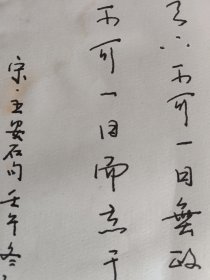 天下不可一日無政
不可一日而亡于
宋·王安石句 壬午冬